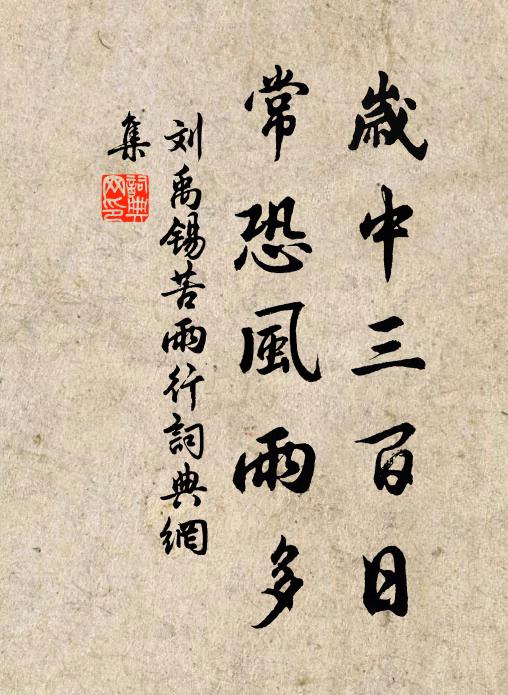 歲中三百日
常恐風雨多
刘禹錫苦雨行詞典網
集
詞典
网印